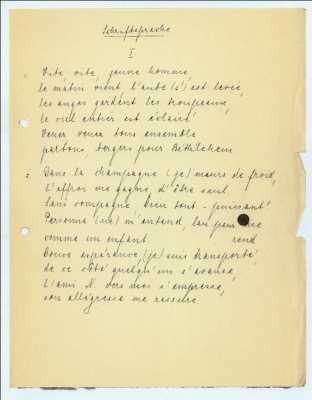 Schriftsprache
I.
1. Vite, vite, jeune homme,
le matin vient, l'aube (s') est levée,
les anges gardent les troupeaux,
le ciel entier est éclairé!
Venez venez tous ensemble
partons, bergers pour Bethlehem
2. Dans la champagne (je) meurs de froid,
l'effroi me gagne d'être seul.
Sans compagne Dieu tout-puissant!
Personne (ne) m'entend, la peur me
comme un enfant. rend
Douce espérance, (je) suis transporté,
de ce côté quelqu'un s'avance,
l'ami N. vers moi s'empresse,
son allégresse me rassure.